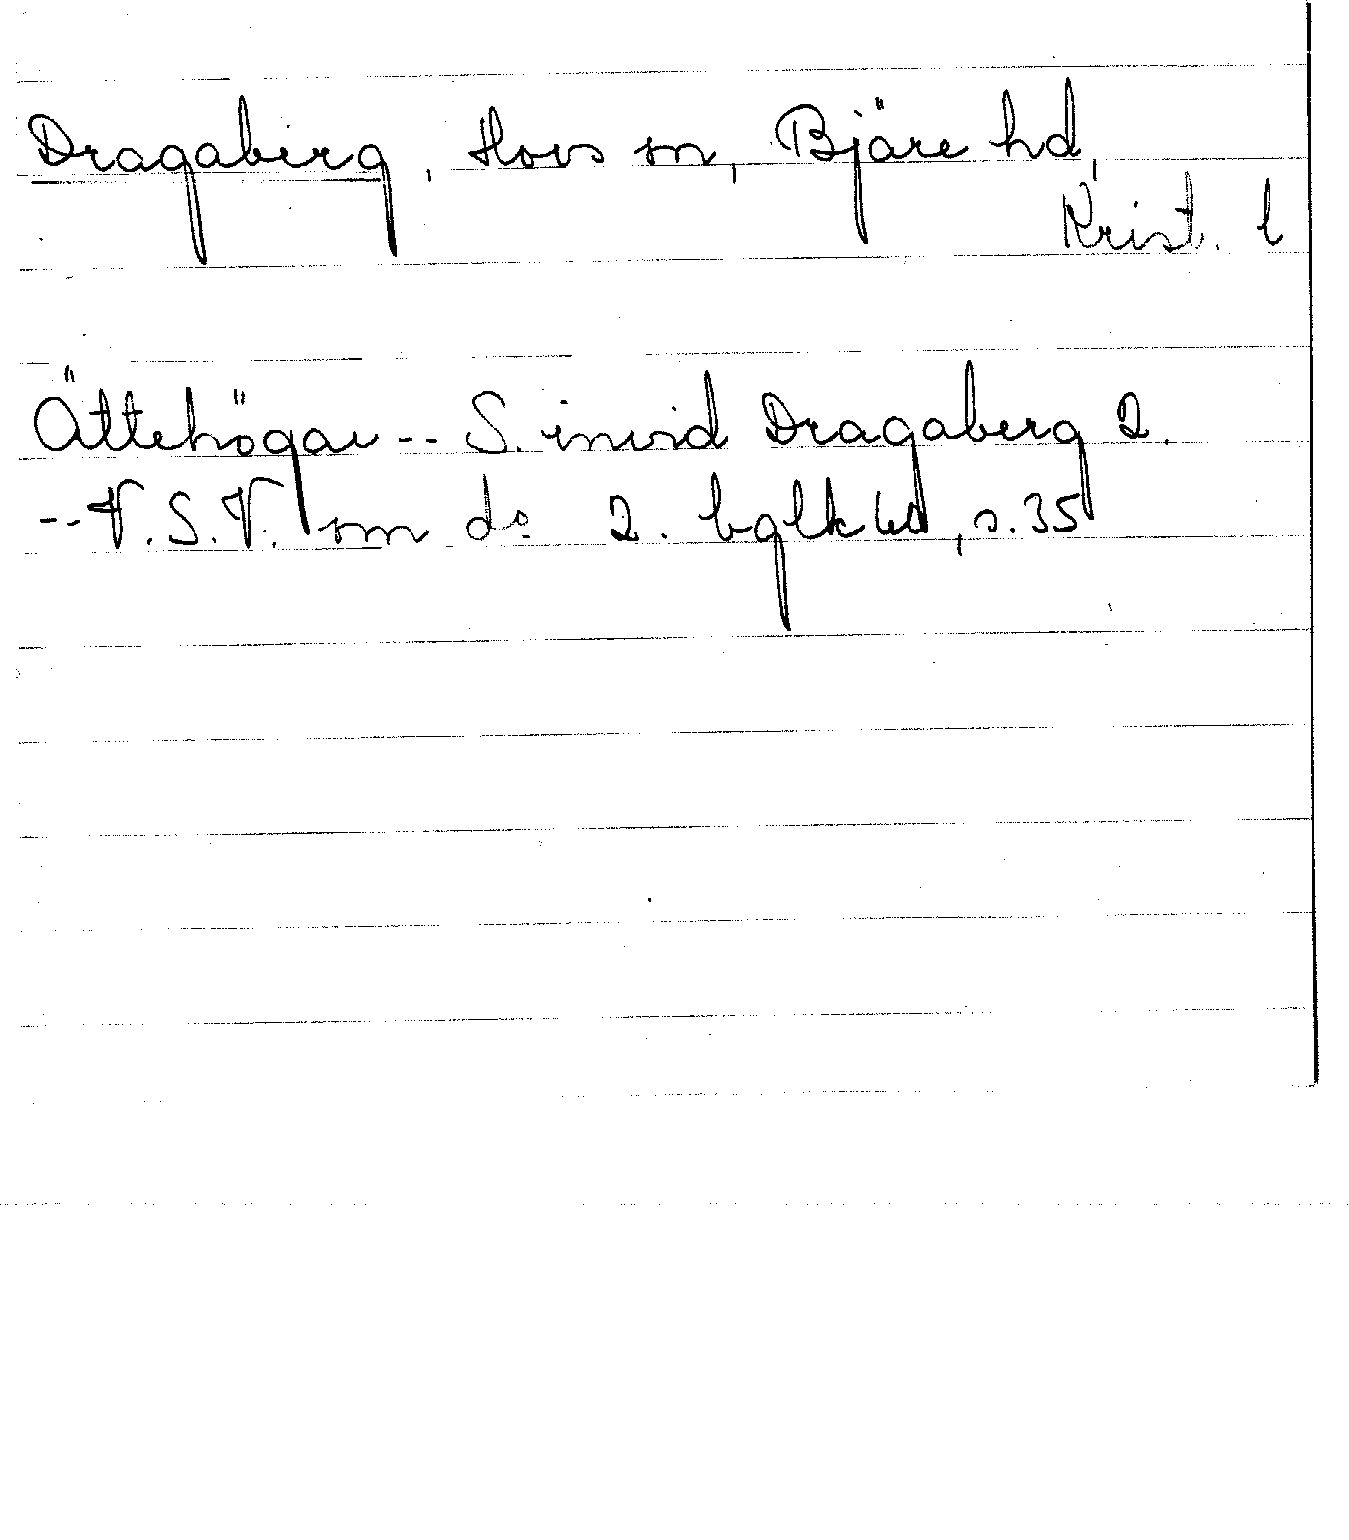 Dragaberg, Hovs sn, Bjäre hd,
Krist. l
Ättehögar -- S. invid Dragaberg 2.
-- V.S.V. om do 2. bglkbl, s. 35